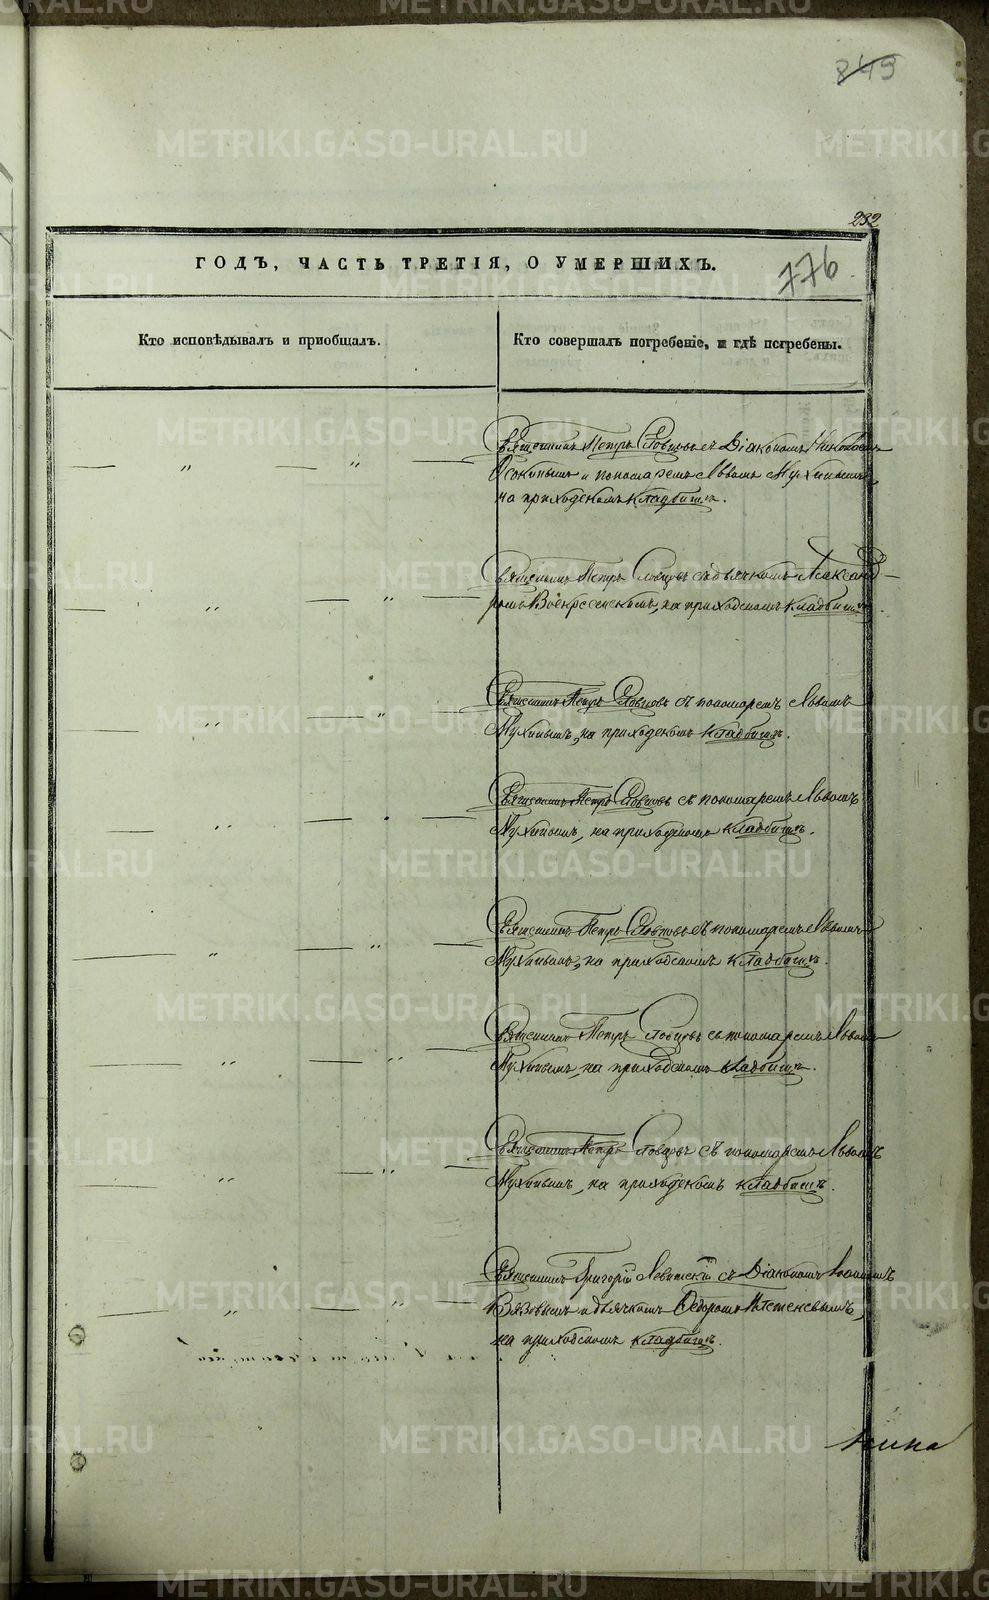 849
232
ГОДЪ, ЧАСТЬ ТРЕТІЯ, О УМЕРШИХЪ.
776
Кто исповѣдывалъ и приобщалъ.
Кто совершалъ погребеніе, и гдѣ погребены.
Священникъ Петръ Словцовъ съ Діакономъ Николаемъ
и пономаремъ Львомъ Мухинымъ
на приходскомъ кладбищѣ.
Священникъ Петръ Словцовъ съ дьячкомъ Александ-
ромъ Воскресенскимъ, на приходскомъ кладбищѣ.
Священникъ Петръ Словцовъ съ пономаремъ Львомъ
Мухинымъ, на приходскомъ кладбищѣ.
Священникъ Петръ Словцовъ съ пономаремъ Львомъ
Мухинымъ, на приходскомъ кладбищѣ.
Священникъ Петръ Словцовъ съ пономаремъ Львомъ
Мухинымъ, на приходскомъ кладбищѣ.
Священникъ Петръ Словцовъ съ пономаремъ Львомъ
Мухинымъ, на приходскомъ кладбищѣ.
Священникъ Петръ Словцовъ съ пономаремъ Львомъ
Мухинымъ, на приходскомъ кладбищѣ.
Священникъ Григорій Левитскій съ Діакономъ
и дьячкомъ Ѳедоромъ
на приходскомъ кладбищѣ.
METRIKI.GASO-URAL.RU